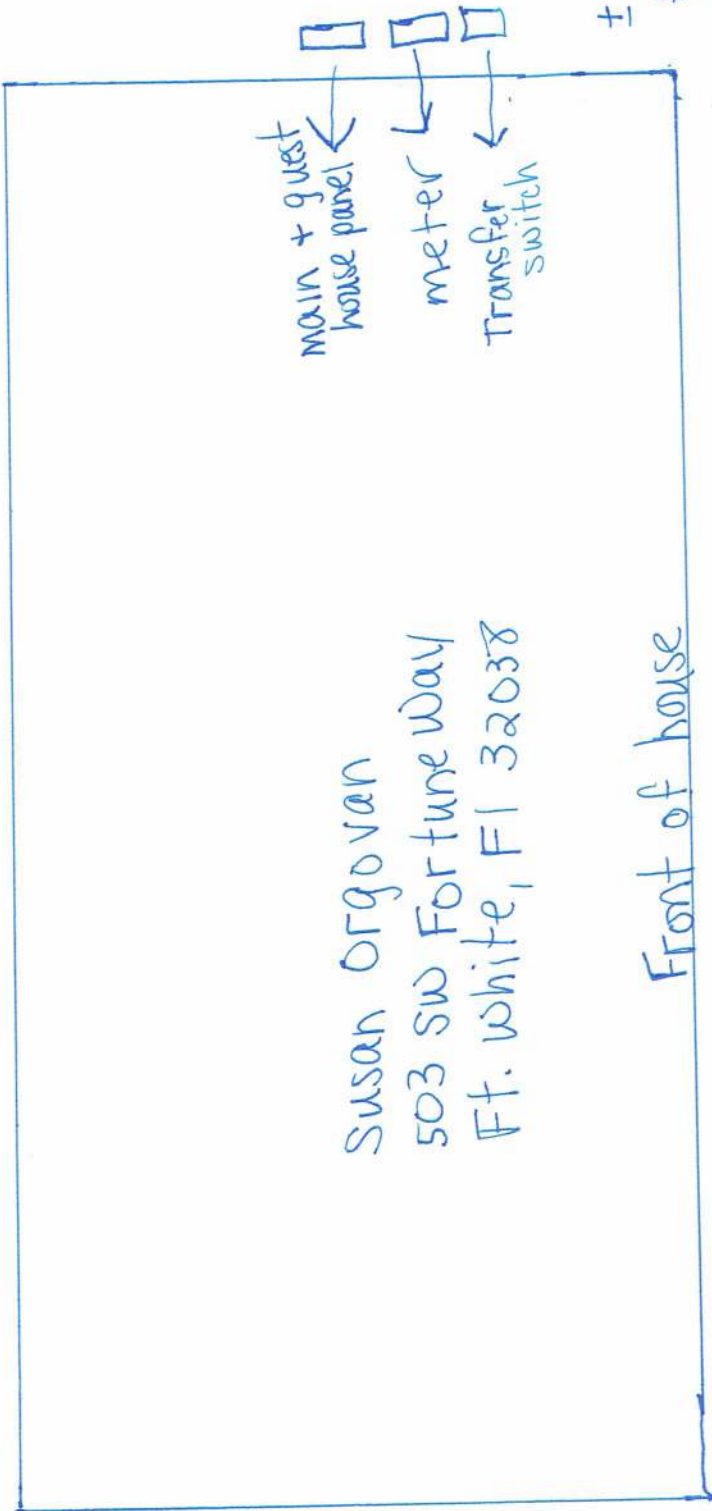 main + guest
house panel
meter
Transfer
switch
±
Susan Orgovan
503 SW Fortune Way
Ft. White, Fl 32038
Front of house